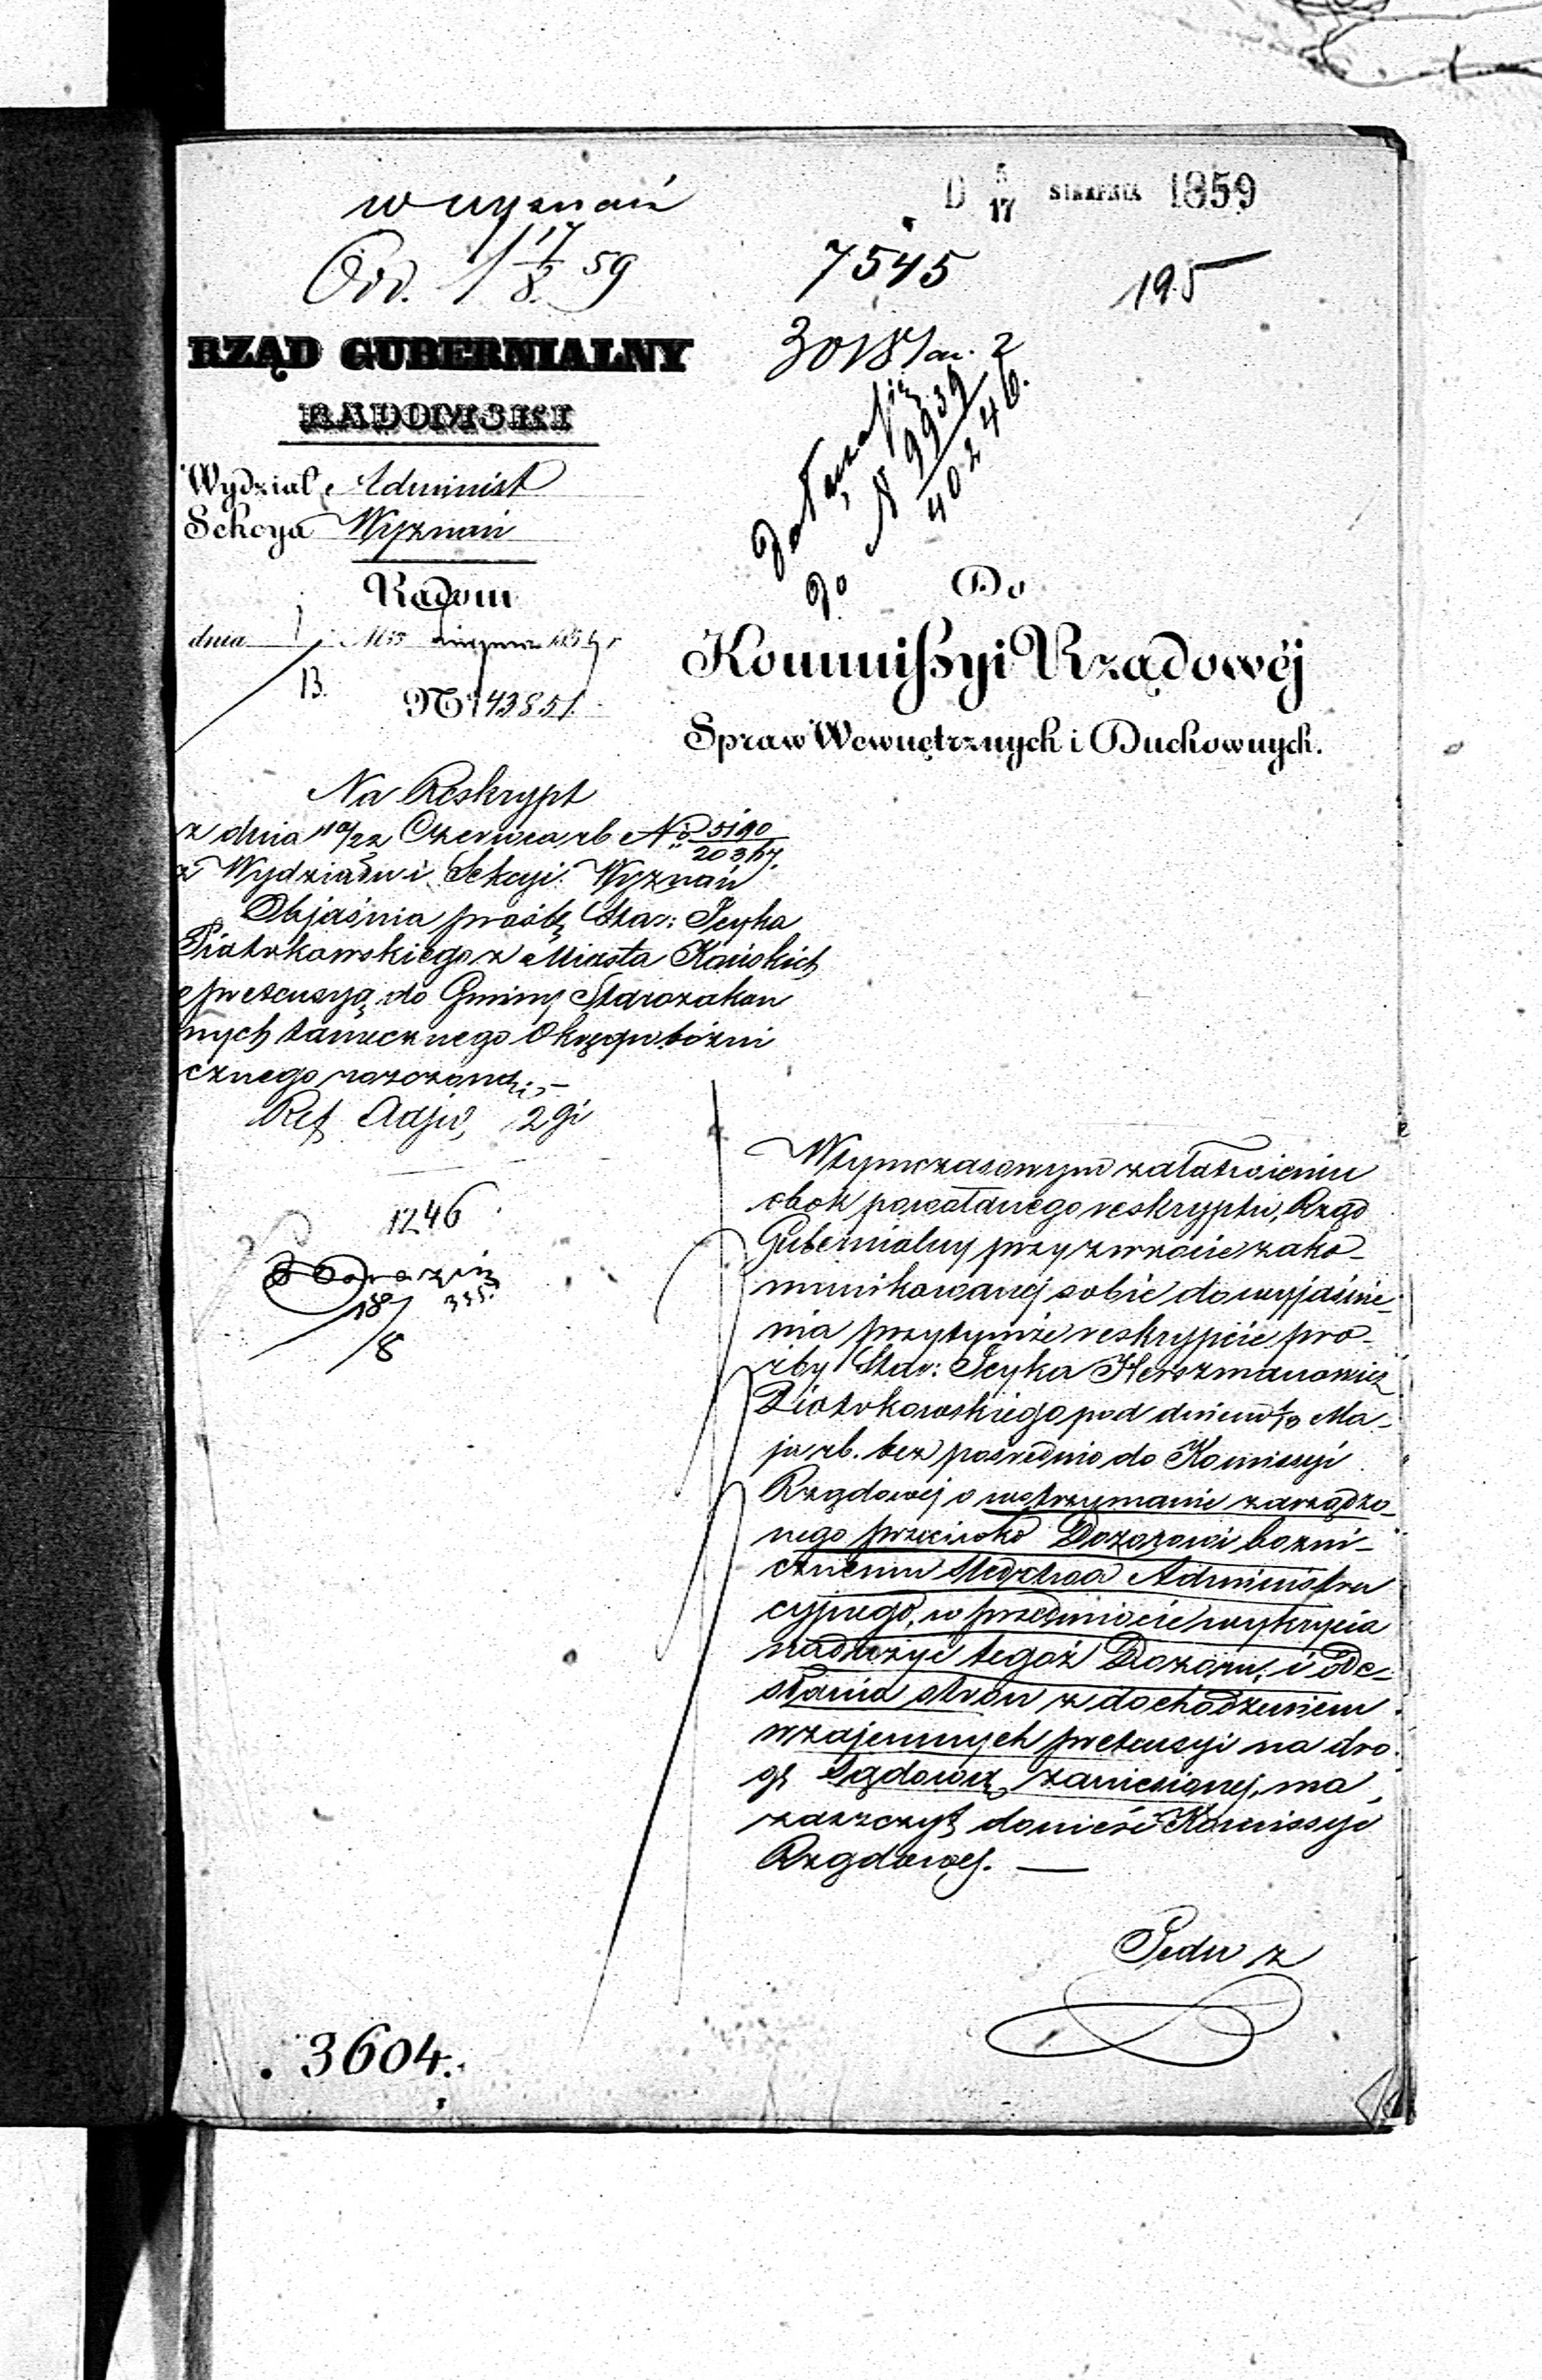 w wyznań
Odd. 1 17/8. 59
D 5/17 SIERPNIA 1859
7545
195
3018/ an. 2
RZĄD GUBERNIALNY
RADOMSKI
Wydział Administ
Sekcya Wyznań
Radom
dnia 1/13. Mca Sierpnia 1859 r
№ 43851.
do N 9939/40246.
Do
Kommissyi Rządowéj
Spraw Wewnętrznych i Duchownych.
Na Reskrypt
z dnia 10/22 Czerwca rb No 5190/20367.
z Wydziału i Sekcyi Wyznań
Objaśnia prośbę Star: Icyka
Piotrkowskiego z Miasta Końskich
z pretensyą do Gminy Starozakon
nych tamecznego Okręgu bóżni
cznego
Ref Adju, 2gi
1246
18/8
W tymczasowym załatwieniu
obok powołanego reskryptu, Rząd
Gubernialny przy zwrocie zako-
munikowanej sobie do wyjaśnie-
nia przytymże reskrypcie pro-
źby Star: Icyka Herszmanowicz
Piotrkowskiego pod dniem 1/13 Ma-
ja rb. bezpośrednio do Komissyi
Rządowej o wstrzymanie zarządzo-
nego przeciwko Dozorowi bożni-
cznemu Śledztwa Administra
cyjnego, w przedmiocie wykrycia
nadużyć tegoż Dozoru, i ode-
słania stron z dochodzeniem
wzajemnych pretensyi na dro-
gę Sądową zaniesionej, ma
zaszczyt donieść Komissyi
Rządowej. —
3604.